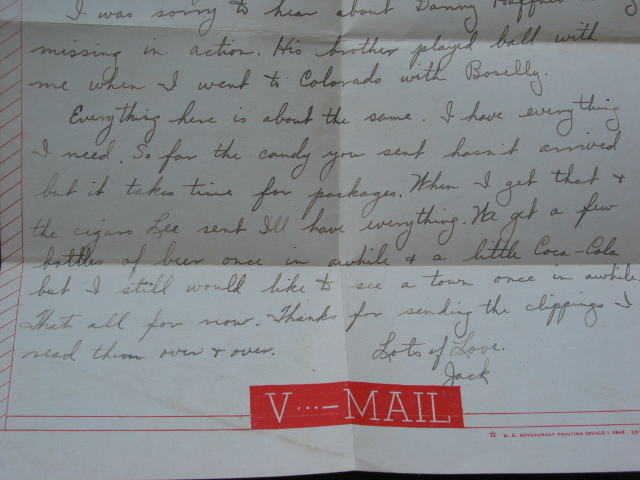 I was sorry to hear about Danny
missing in action. His brother played ball with
me when I went to Colorado with Boselly.
Everything here is about the same. I have everything
I need. So far the candy you sent hasn't arrived
but it takes time for packages. When I get that +
the cigars Lee sent I'll have everything. We get a few
bottles of beer once in awhile + a little Coca-Cola
but I still would like to see a town once in awhile.
That all for now. Thanks for sending the clippings I
read them over + over.
Lots of Love.
Jack
V···—MAIL
☆ U. S. GOVERNMENT PRINTING OFFICE